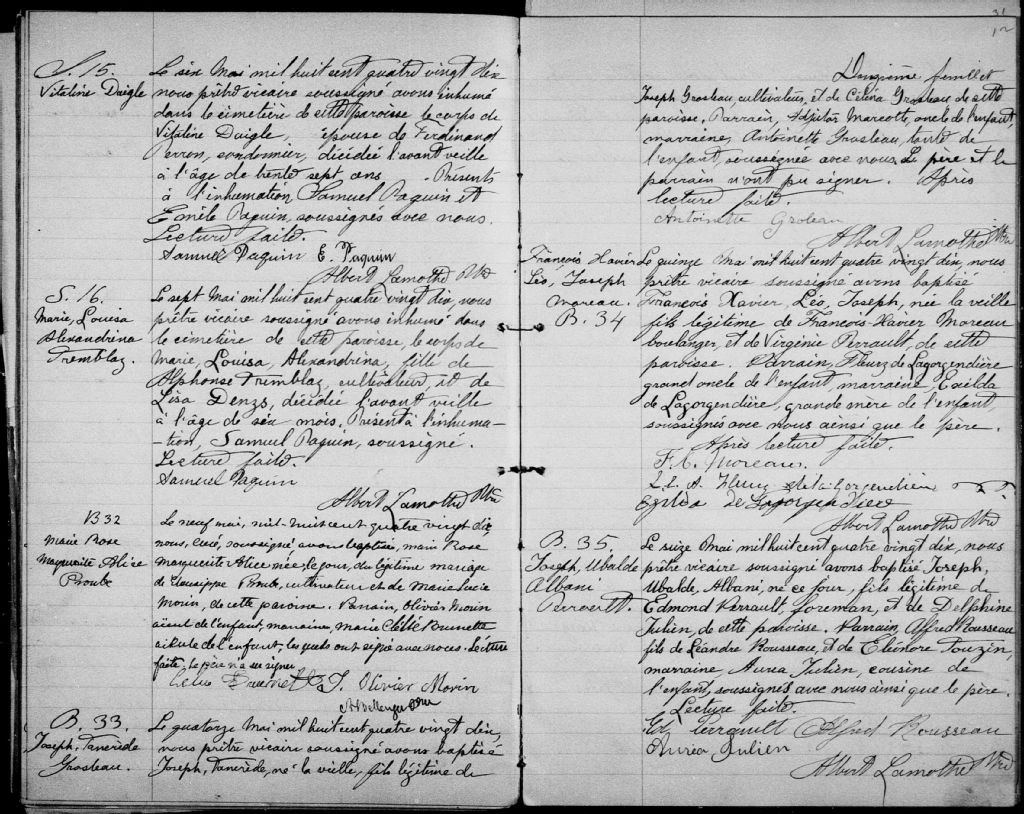 S. 15.
Vitaline Daigle
Le six Mai mil huit cent quatre vingt dix
nous prêtre vicaire soussigné avons inhumé
dans le cimetière de cette paroisse le corps de
Vitaline Daigle, épouse de Ferdinand
Perron, cordonnier, décédée l'avant veille
à l'âge de trente sept ans. Présents
à l'inhumation Samuel Paquin et
Emile Paquin, soussignés avec nous.
Lecture faite.
Samuel Paquin E. Paquin
Albert Lamothe Ptre
S. 16.
Marie, Louisa
Alexandrina
Tremblay.
Le sept Mai mil huit cent quatre vingt dix, nous
prêtre vicaire soussigné avons inhumé dans
le cimetière de cette paroisse, le corps de
Marie, Louisa, Alexandrina, fille de
Alphonse Tremblay, cultivateur, et de
Lisa Denys, décédée l'avant veille
à l'âge de six mois. Présent à l'inhuma-
tion, Samuel Paquin, soussigné.
Lecture faite.
Samuel Paquin
Albert Lamothe Ptre
B 32
Marie Rose
Marguerite Alice
Proulx
Le neuf mai, mil-huit cent quatre vingt dix
nous, Curé, soussigné avons baptisé, Marie Rose
Marguerite Alice née, le jour, du légitime mariage
de Proulx, cultivateur et de Marie Lucie
Morin, de cette paroisse. Parrain, Olivier Morin
aïeul de l'enfant, marraine, Marie Célie Brunette
aïeule de l'enfant, lesquels ont signé avec nous. Lecture
faite, le père n'a su signer
Célie Brunette J. Olivier Morin
Ptre
B. 33.
Joseph, Tancrède
Grosleau.
Le quatorze Mai mil huit cent quatre vingt dix,
nous prêtre vicaire soussigné avons baptisé
Joseph, Tancrède, né la veille, fils légitime de
31
12
Douzième feuillet
Joseph Grosleau, cultivateur, et de Célina Grosleau de cette
paroisse, Parrain, Marcotte, oncle de l'enfant,
marraine, Antoinette Grosleau, tante de
l'enfant, soussignée avec nous. Le père et le
parrain n'ont pu signer. Après
lecture faite.
Antoinette Groleau
Albert Lamothe Ptre
François Xavier
Léo, Joseph
Moreau.
B. 34
Le quinze Mai mil huit cent quatre vingt dix, nous
prêtre vicaire soussigné avons baptisé
François Xavier, Léo, Joseph, née la veille
fils légitime de François-Xavier Moreau
boulanger, et de Virginie Perrault, de cette
paroisse. Parrain, Fleury de Lagorgendière
grand oncle de l'enfant, marraine, Exilda
de Lagorgendière, grande mère de l'enfant,
soussignés avec nous ainsi que le père.
Après lecture faite.
F. X. Moreau.
Fleury de la Gorgendière
de Lagorgendière
Albert Lamothe Ptre
B. 35.
Joseph, Ubalde
Albani
Perrault.
Le seize Mai mil huit cent quatre vingt dix, nous
prêtre vicaire soussigné avons baptisé, Joseph,
Ubalde, Albani, né ce jour, fils légitime de
Edmond Perrault, foreman, et de Delphine
Julien, de cette paroisse. Parrain, Alfred Rousseau
fils de Léandre Rousseau, et de Elénore Touzin,
marraine, Aurea Julien, cousine de
l'enfant, soussignés avec nous ainsi que le père.
Lecture faite.
Ed. Perrault Alfred Rousseau
Auréa Julien
Albert Lamothe Ptre